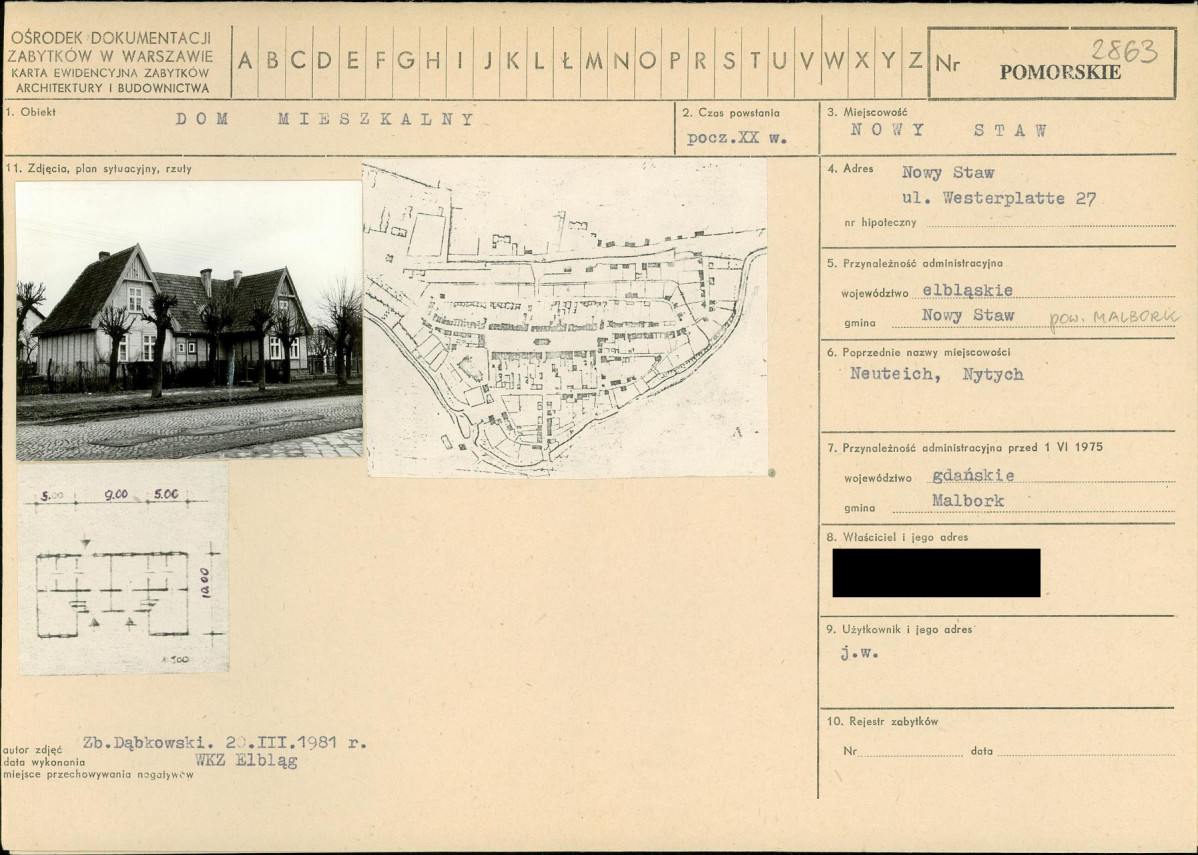 OŚRODEK DOKUMENTACJI
ZABYTKÓW W WARSZAWIE
KARTA EWIDENCYJNA ZABYTKÓW
ARCHITEKTURY I BUDOWNICTWA
A B C D E F G H I J K L Ł M N O P R S T U V W X Y Z
Nr 2863
POMORSKIE
1. Obiekt
DOM MIESZKALNY
2. Czas powstania
pocz.XX w.
3. Miejscowość
NOWY STAW
11. Zdjęcia, plan sytuacyjny, rzuty
5.00 9.00 5.00
10.00
1:500
autor zdjęć Zb.Dąbkowski. 20.III.1981 r.
data wykonania WKZ Elbląg
miejsce przechowywania negatywów
4. Adres Nowy Staw
ul. Westerplatte 27
nr hipoteczny
5. Przynależność administracyjna
województwo elbląskie
gmina Nowy Staw pow. MALBORK
6. Poprzednie nazwy miejscowości
Neuteich, Nytych
7. Przynależność administracyjna przed 1 VI 1975
województwo gdańskie
gmina Malbork
8. Właściciel i jego adres
9. Użytkownik i jego adres
j.w.
10. Rejestr zabytków
Nr data